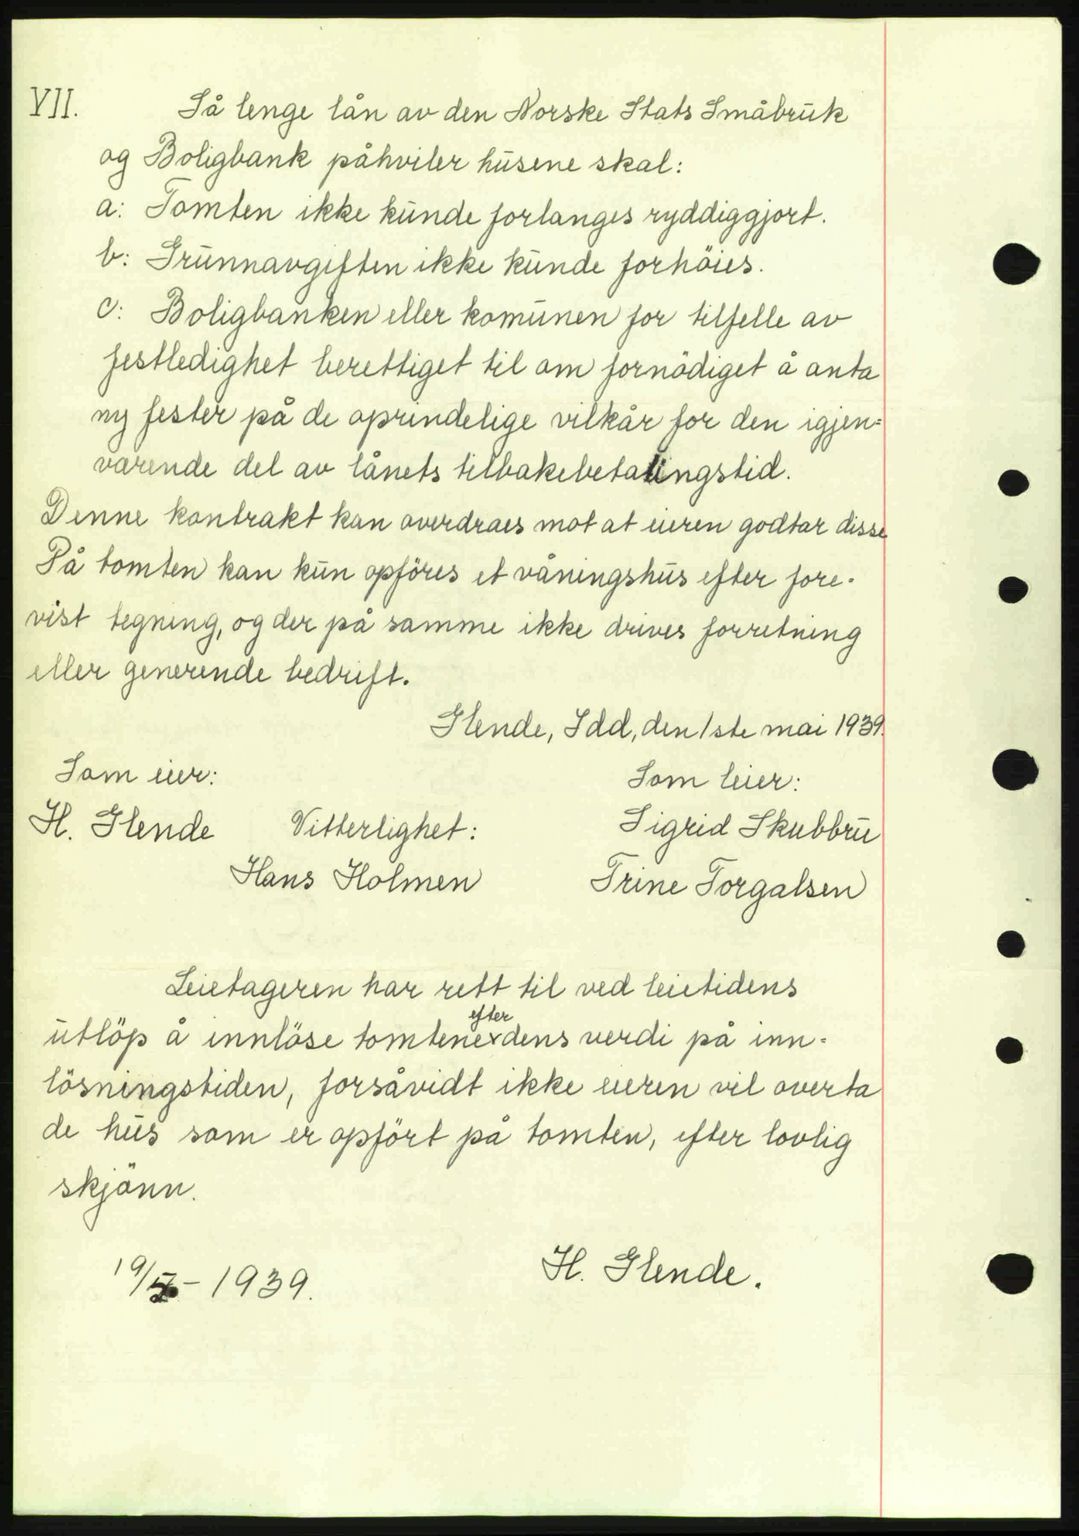 VII. Så lenge lån av den Norske Stats Småbruk
og Boligbank påhviler husene skal:
a: Tomten ikke kunde forlanges ryddiggjort.
b: Grunnavgiften ikke kunde forhöies.
c: Boligbanken eller komunen for tilfelle av
festledighet berettiget til om fornödiget å anta
ny fester på de oprindelige vilkår for den igjen=
værende del av lånets tilbakebetalingstid.
Denne kontrakt kan overdraes mot at eieren godtar disse
På tomten kan kun opföres et våningshus efter fore-
vist tegning, og der på samme ikke drives forretning
eller generende bedrift.
Glende, Idd, den 1ste mai 1939.
Som eier: Som leier:
H. Glende Vitterlighet: Sigrid Skubbru
Hans Holmen Trine Torgalsen
Leietageren har rett til ved leietidens
efter
utlöp å innlöse tomtene x dens verdi på inn-
lösningstiden, forsåvidt ikke eieren vil overta
de hus som er opfört på tomten, efter lovlig
skjönn.
19/5-1939. H. Glende.